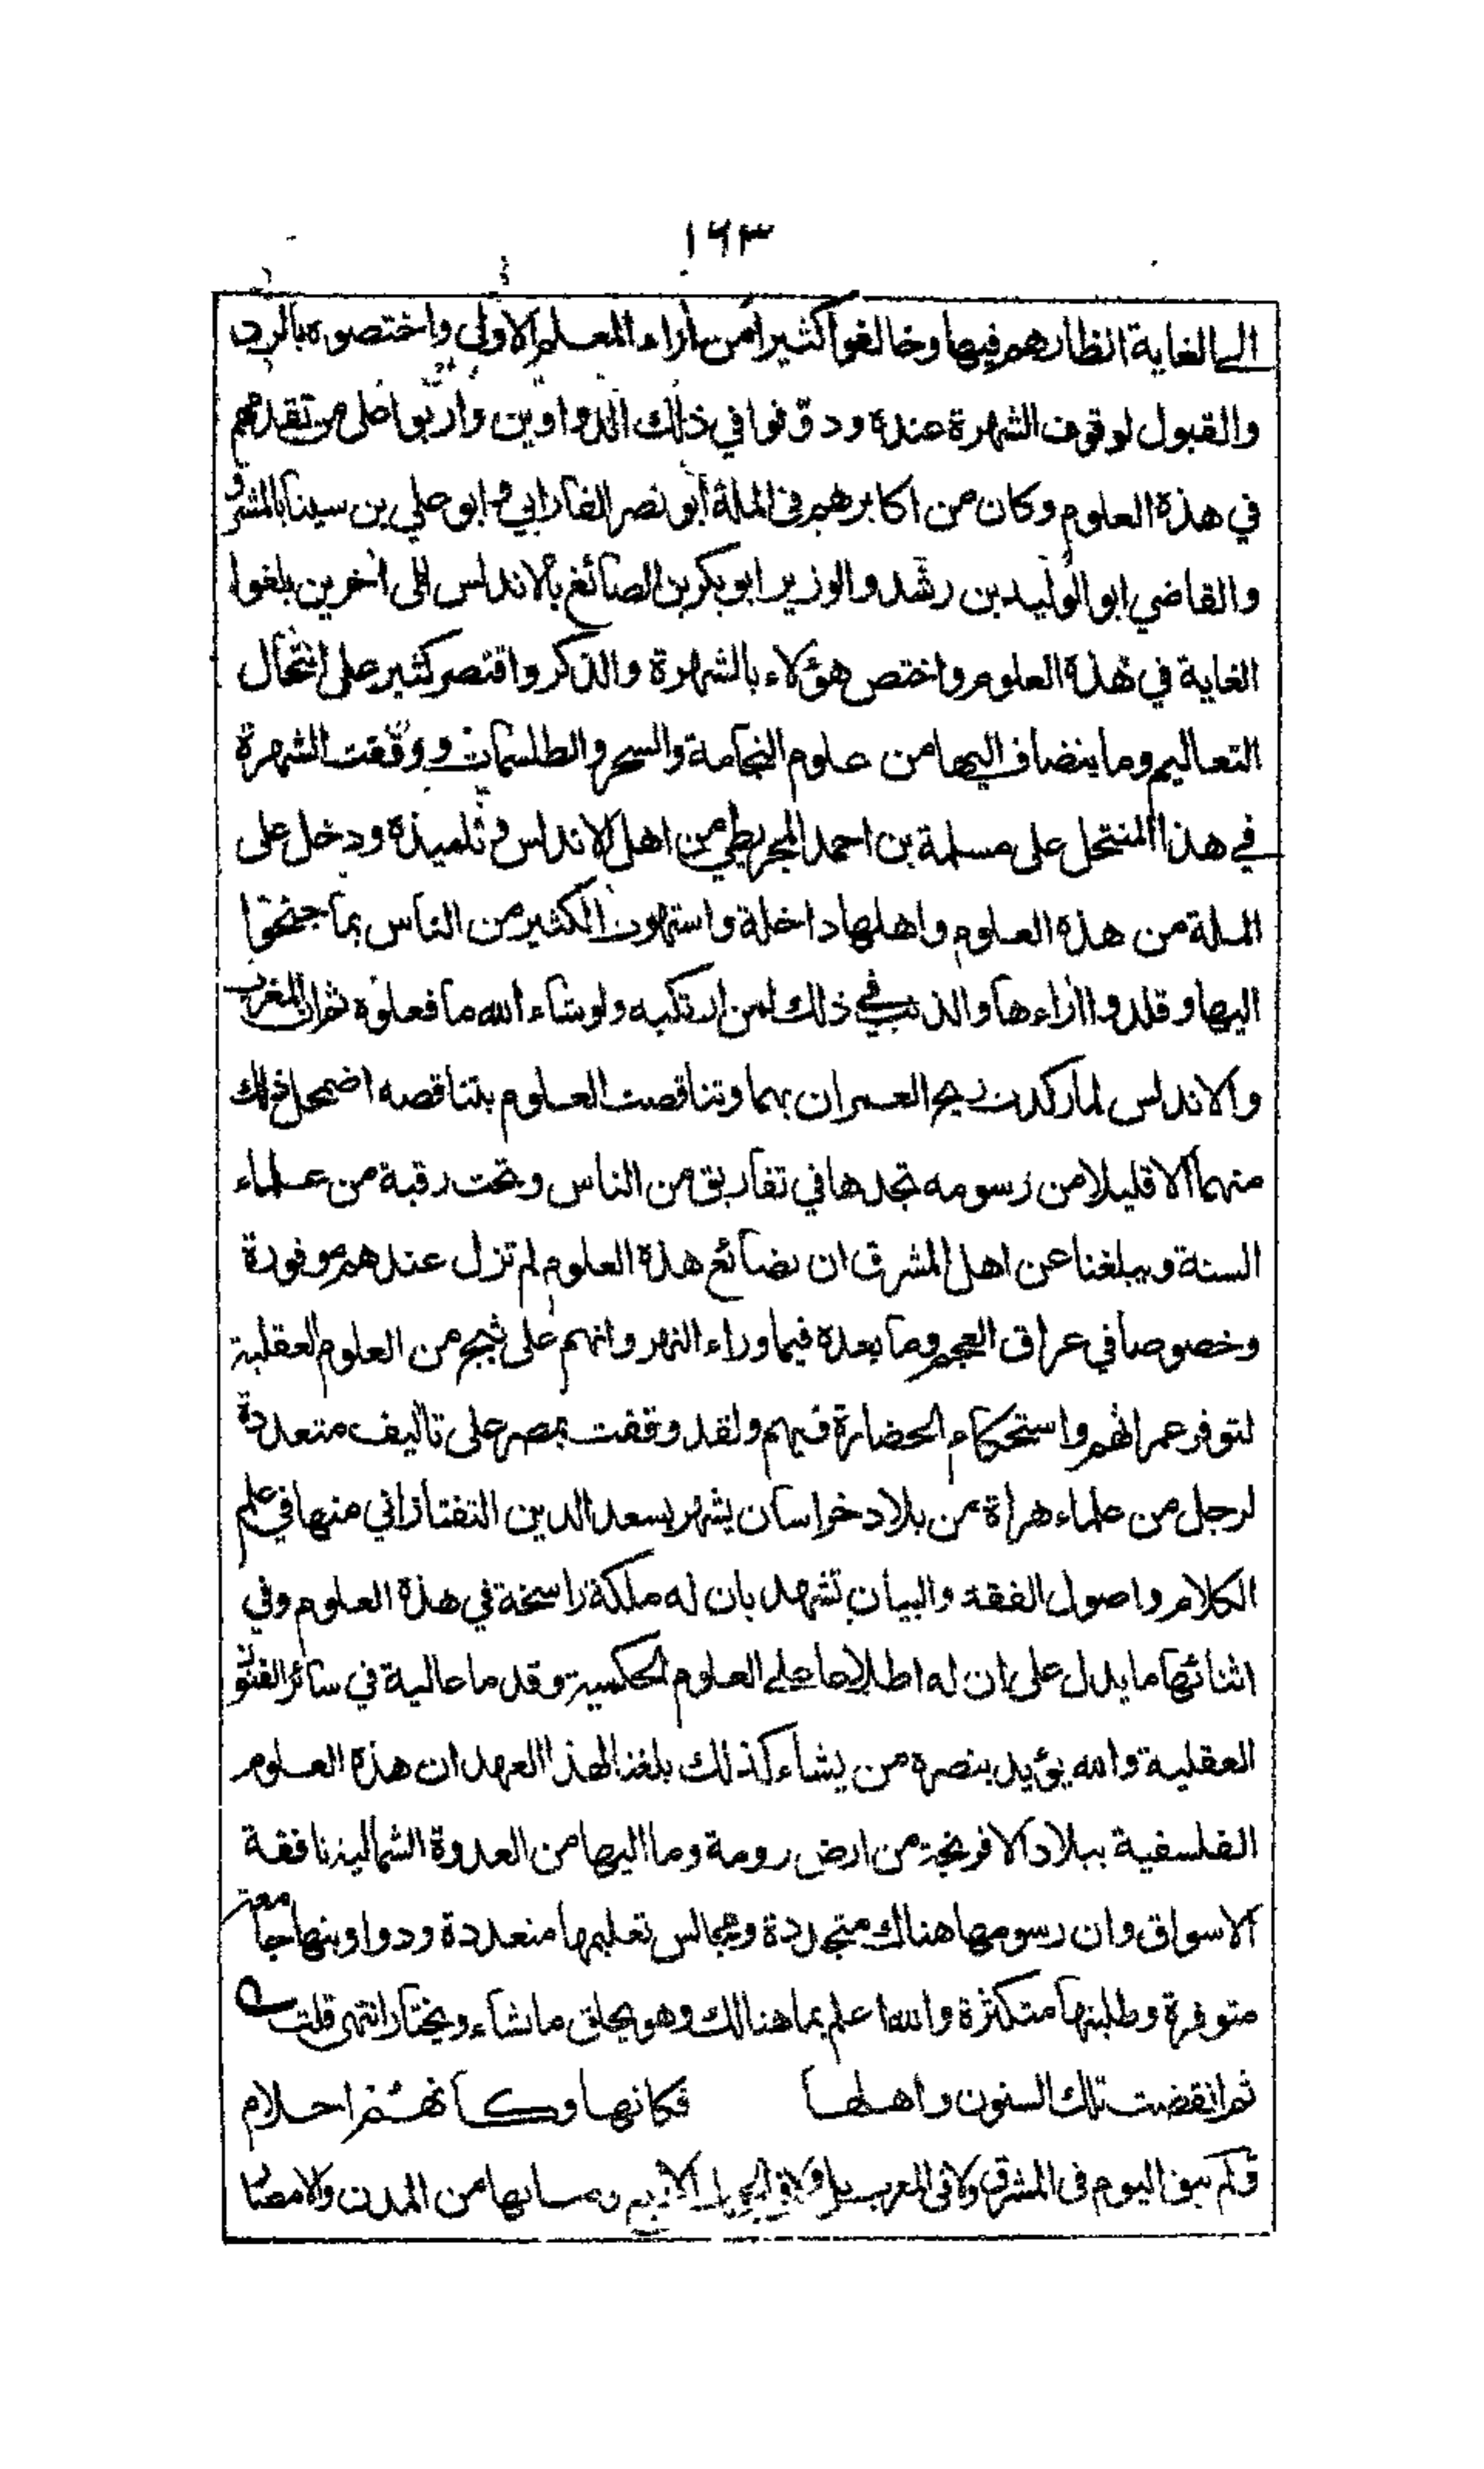 ١٦٣
الى الغاية انظارهم فيها وخالفوا كثيرا من آراء المعلم الاول واختصوه بالرد
والقبول لوقوف الشهرة عنده ودونوا في ذلك الدواوين واربوا على من تقدمهم
في هذه العلوم وكان من اكابرهم في الملة ابو نصر الفارابي وابو علي بن سينا بالمشرق
والقاضي ابو الوليد بن رشد والوزير ابو بكر بن الصائغ بالاندلس الى آخرين بلغوا
الغاية في هذه العلوم واختص هؤلاء بالشهرة والذكر واقتصر كثير على انتحال
التعاليم وما ينضاف اليها من علوم النجامة والسحر والطلسمات ووقفت الشهرة
في هذا المنتحل على مسلمة بن احمد المجريطي من اهل الاندلس وتلميذه ودخل على
الملة من هذه العلوم واهلها داخلة واستهوت الكثير من الناس بما جنحوا
اليها وقلدوا اراءها والذنب في ذلك لمن ارتكبه ولو شاء الله ما فعلوه ثم ان المغرب
والاندلس لما ركدت ريح العمران بهما وتناقصت العلوم بتناقصه اضمحل ذلك
منهما الا قليلا من رسومه تجدها في تفاريق من الناس وتحت رقبة من علماء
السنة ويبلغنا عن اهل المشرق ان بضائع هذه العلوم لم تزل عندهم موفورة
وخصوصا في عراق العجم وما بعده فيما وراء النهر وانهم على ثبج من العلوم العقلية
لتوفر عمرانهم واستحكام الحضارة فيهم ولقد وقفت بمصر على تاليف متعددة
لرجل من علماء هراة من بلاد خراسان يشهر بسعد الدين التفتازاني منها في علم
الكلام واصول الفقه والبيان تشهد بان له ملكة راسخة في هذه العلوم وفي
اثنائها ما يدل على ان له اطلاعا على العلوم الحكمية وقدما عالية في سائر الفنون
العقلية والله يؤيد بنصره من يشاء كذلك بلغنا لهذا العهد ان هذه العلوم
الفلسفية ببلاد الافرنجة من ارض رومة وما اليها من العدوة الشمالية نافقة
الاسواق وان رسومها هناك متجددة ومجالس تعليمها متعددة ودواوينها جامعة
متوفرة وطلبتها متكثرة والله اعلم بما هنالك وهو يخلق ما يشاء ويختار انتهى قلت
ثم انقضت تلك السنون واهلها فكانها وكانهم احلام
ولم يبق اليوم في المشرق ولا في المغرب بل ولا في من المدن والامصار